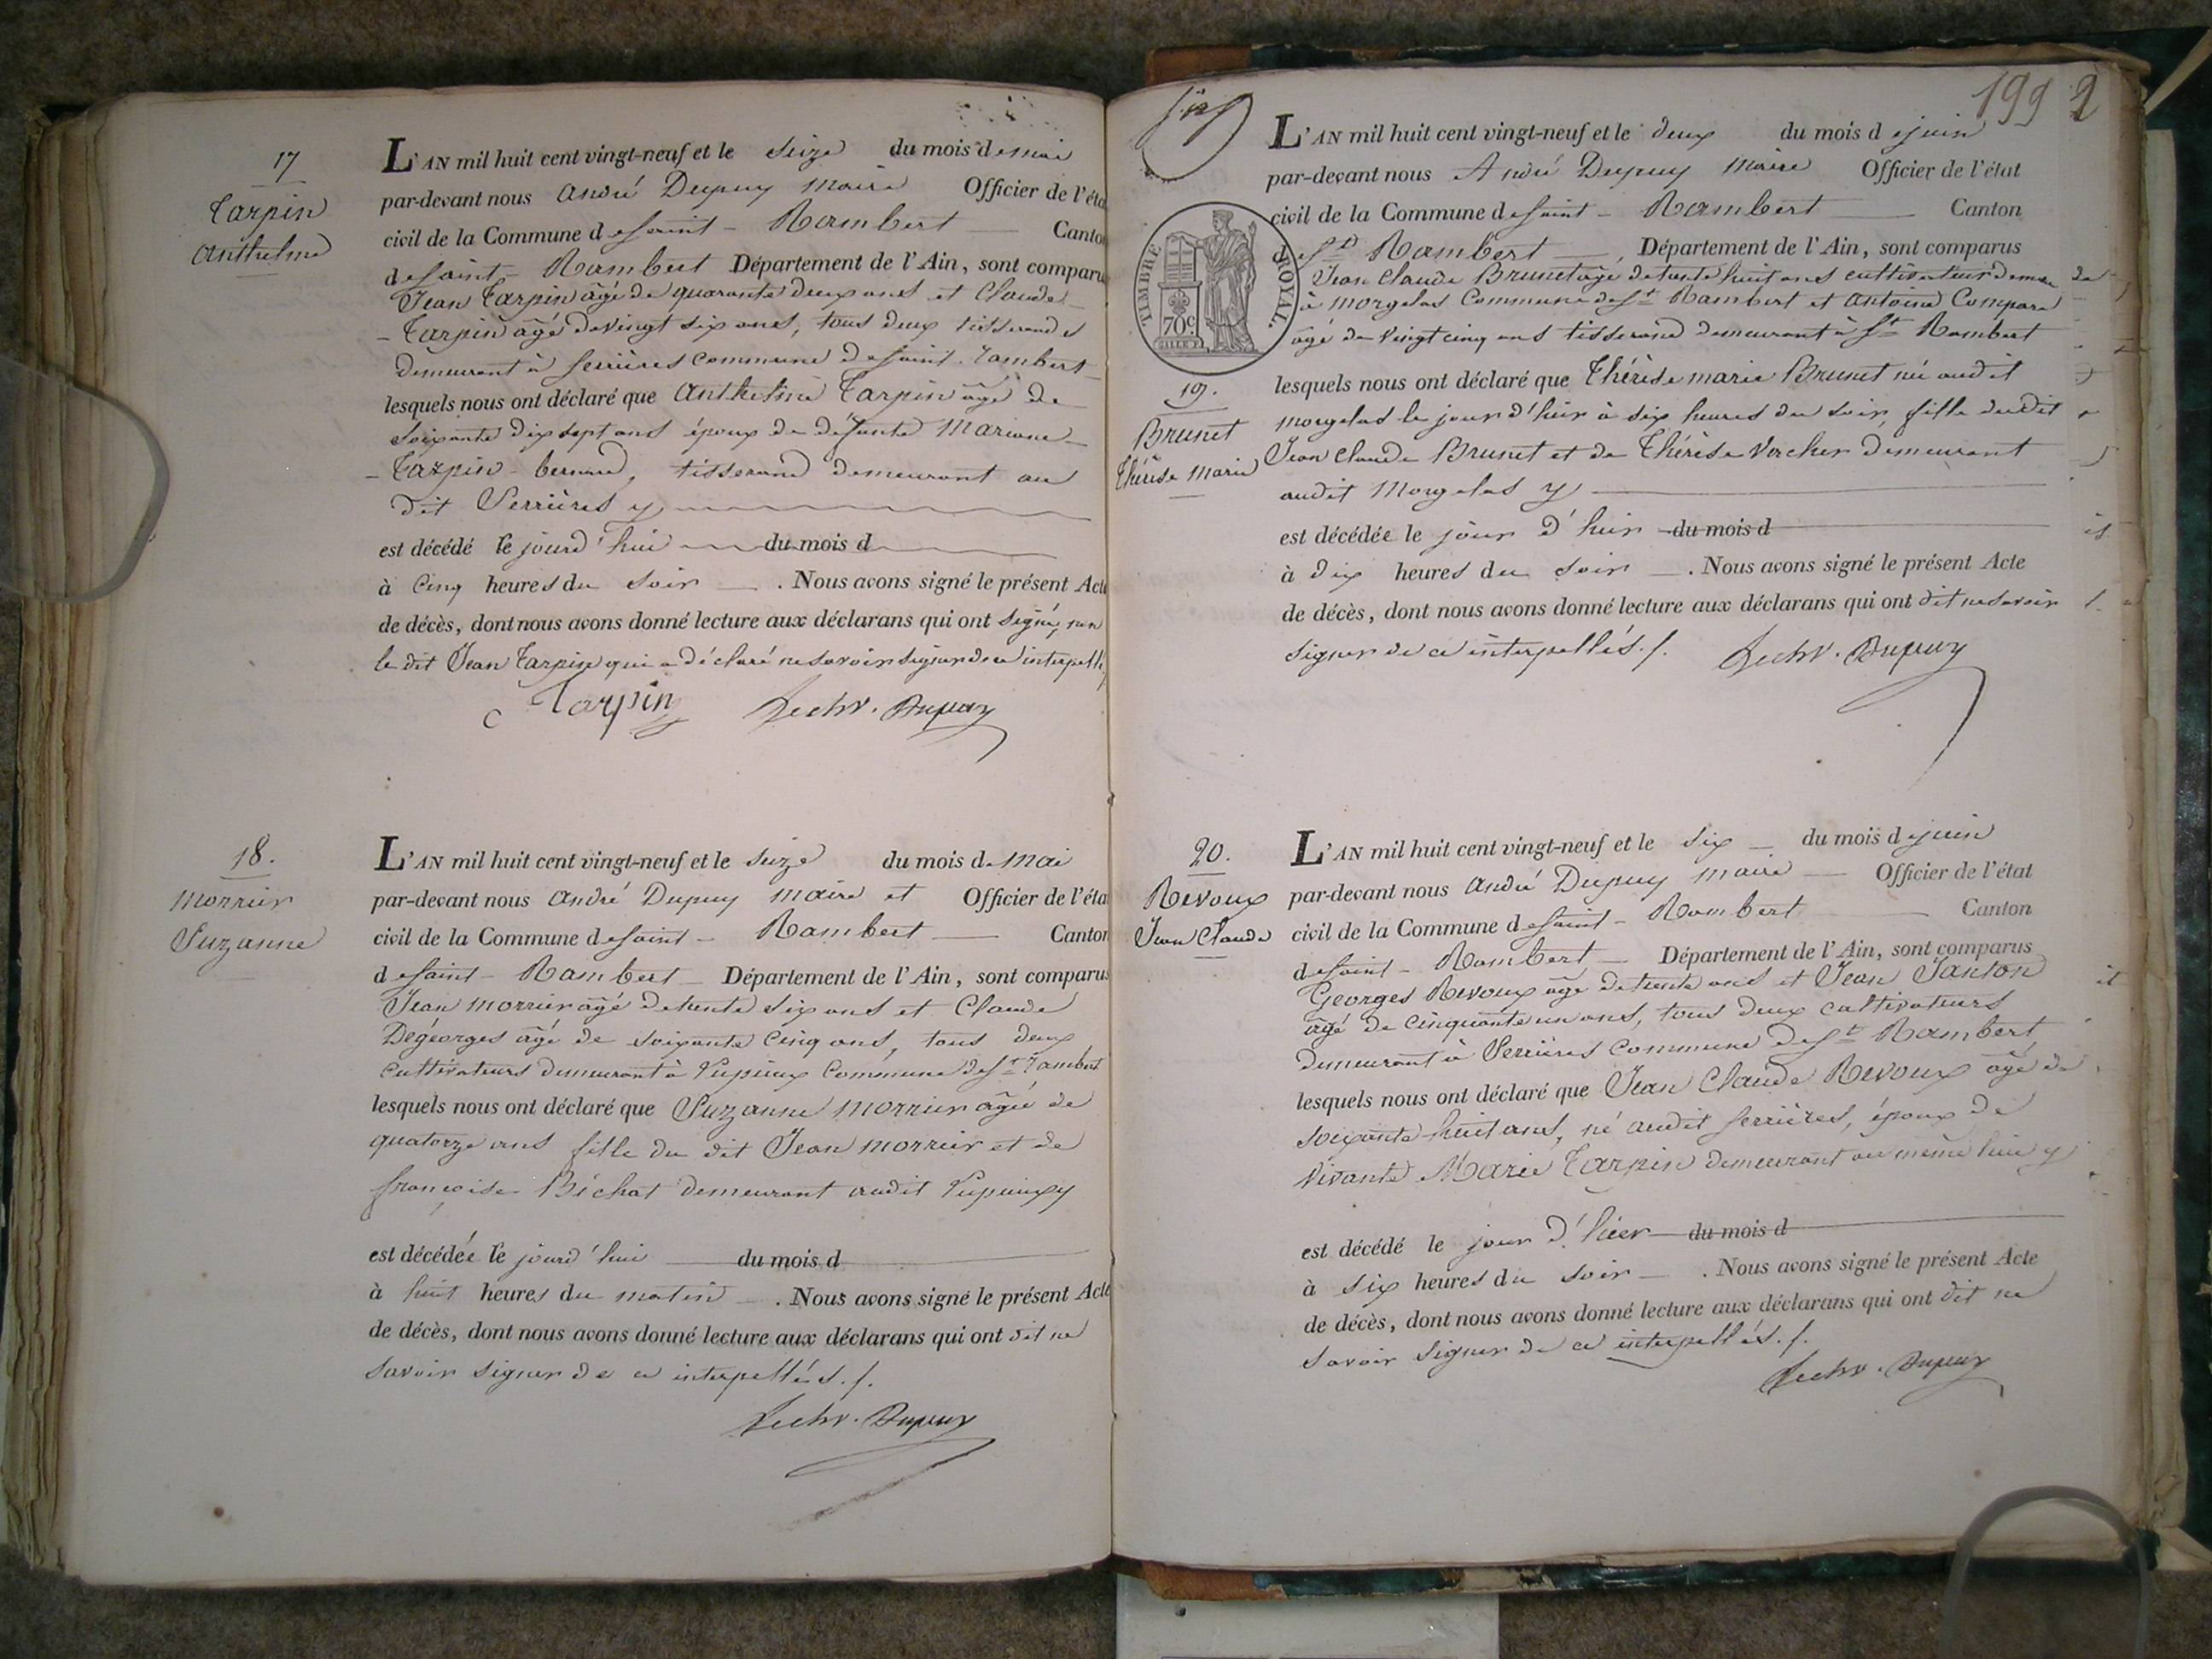 17
Tarpin
Anthelme
L'AN mil huit cent vingt-neuf et le seize du mois de mai
par-devant nous André Dupuy maire Officier de l'éta
civil de la Commune de saint - Rambert Canton
de saint - Rambert Département de l'Ain, sont comparu
Jean Tarpin âgé de quarante deux ans et Claude
Tarpin âgé de vingt six ans, tous deux tisserands
demeurant à serrières commune de saint-rambert
lesquels nous ont déclaré que Anthelme Tarpin âgé de
soixante dix sept ans époux de défunte Mariane
Tarpin - bernard, tisserand demeurant au
dit Serrières y
est décédé le jourd'hui du mois d
à cinq heures du soir . Nous avons signé le présent Acte
de décès, dont nous avons donné lecture aux déclarans qui ont signé, non
le dit Jean Tarpin qui a déclaré ne savoir signer de ce interpellé
C Tarpin Dupuy
18.
morrier
Suzanne
L'AN mil huit cent vingt-neuf et le seize du mois de mai
par-devant nous André Dupuy maire et Officier de l'éta
civil de la Commune de saint - Rambert Canton
de saint - Rambert Département de l'Ain, sont comparus
Jean morrier âgé de trente six ans et Claude
Dégeorges âgé de soixante cinq ans, tous deux
cultivateurs demeurant à Lupieux Commune de St rambert
lesquels nous ont déclaré que Suzanne morrier âgée de
quatorze ans fille du dit Jean morrier et de
françoise Béchat demeurant audit Lupieux y
est décédée le jourd'hui du mois d
à huit heures du matin . Nous avons signé le présent Acte
de décès, dont nous avons donné lecture aux déclarans qui ont dit ne
savoir signer de ce interpellés./.
Dupuy
199 2
TIMBRE ROYAL.
70c
19.
Brunet
Thérèse Marie
L'AN mil huit cent vingt-neuf et le deux du mois de juin
par-devant nous André Dupuy maire Officier de l'état
civil de la Commune de saint - Rambert Canton
de St Rambert , Département de l'Ain, sont comparus
Jean Claude Brunet âgé de trente huit ans cultivateur demeu
à morgelas Commune de St Rambert et antoine Compare
âgé de vingt cinq ans tisserand demeurant à St Rambert
lesquels nous ont déclaré que Thérèse marie Brunet né audit
morgelas le jour d'hier à six heures du soir, fille dudit
Jean Claude Brunet et de Thérèse Vercher demeurant
audit Morgelas y
est décédée le jour d'hier du mois d
à dix heures du soir . Nous avons signé le présent Acte
de décès, dont nous avons donné lecture aux déclarans qui ont dit ne savoir
signer de ce interpellés./. Dupuy
20.
Revoux
Jean Claude
L'AN mil huit cent vingt-neuf et le six du mois de juin
par-devant nous André Dupuy maire Officier de l'état
civil de la Commune de saint - Rambert Canton
de saint - Rambert Département de l'Ain, sont comparus
Georges Revoux âgé de trente ans et Jean Janton
âgé de cinquante un ans, tous deux cultivateurs
demeurant à Serrières commune de St Rambert
lesquels nous ont déclaré que Jean Claude Revoux âgé de
soixante huit ans, né audit serrières, époux de
vivante Marie Tarpin demeurant au même lieu y
est décédé le jour d'hier du mois d
à six heures du soir . Nous avons signé le présent Acte
de décès, dont nous avons donné lecture aux déclarans qui ont dit ne
savoir signer de ce interpellés./.
Dupuy